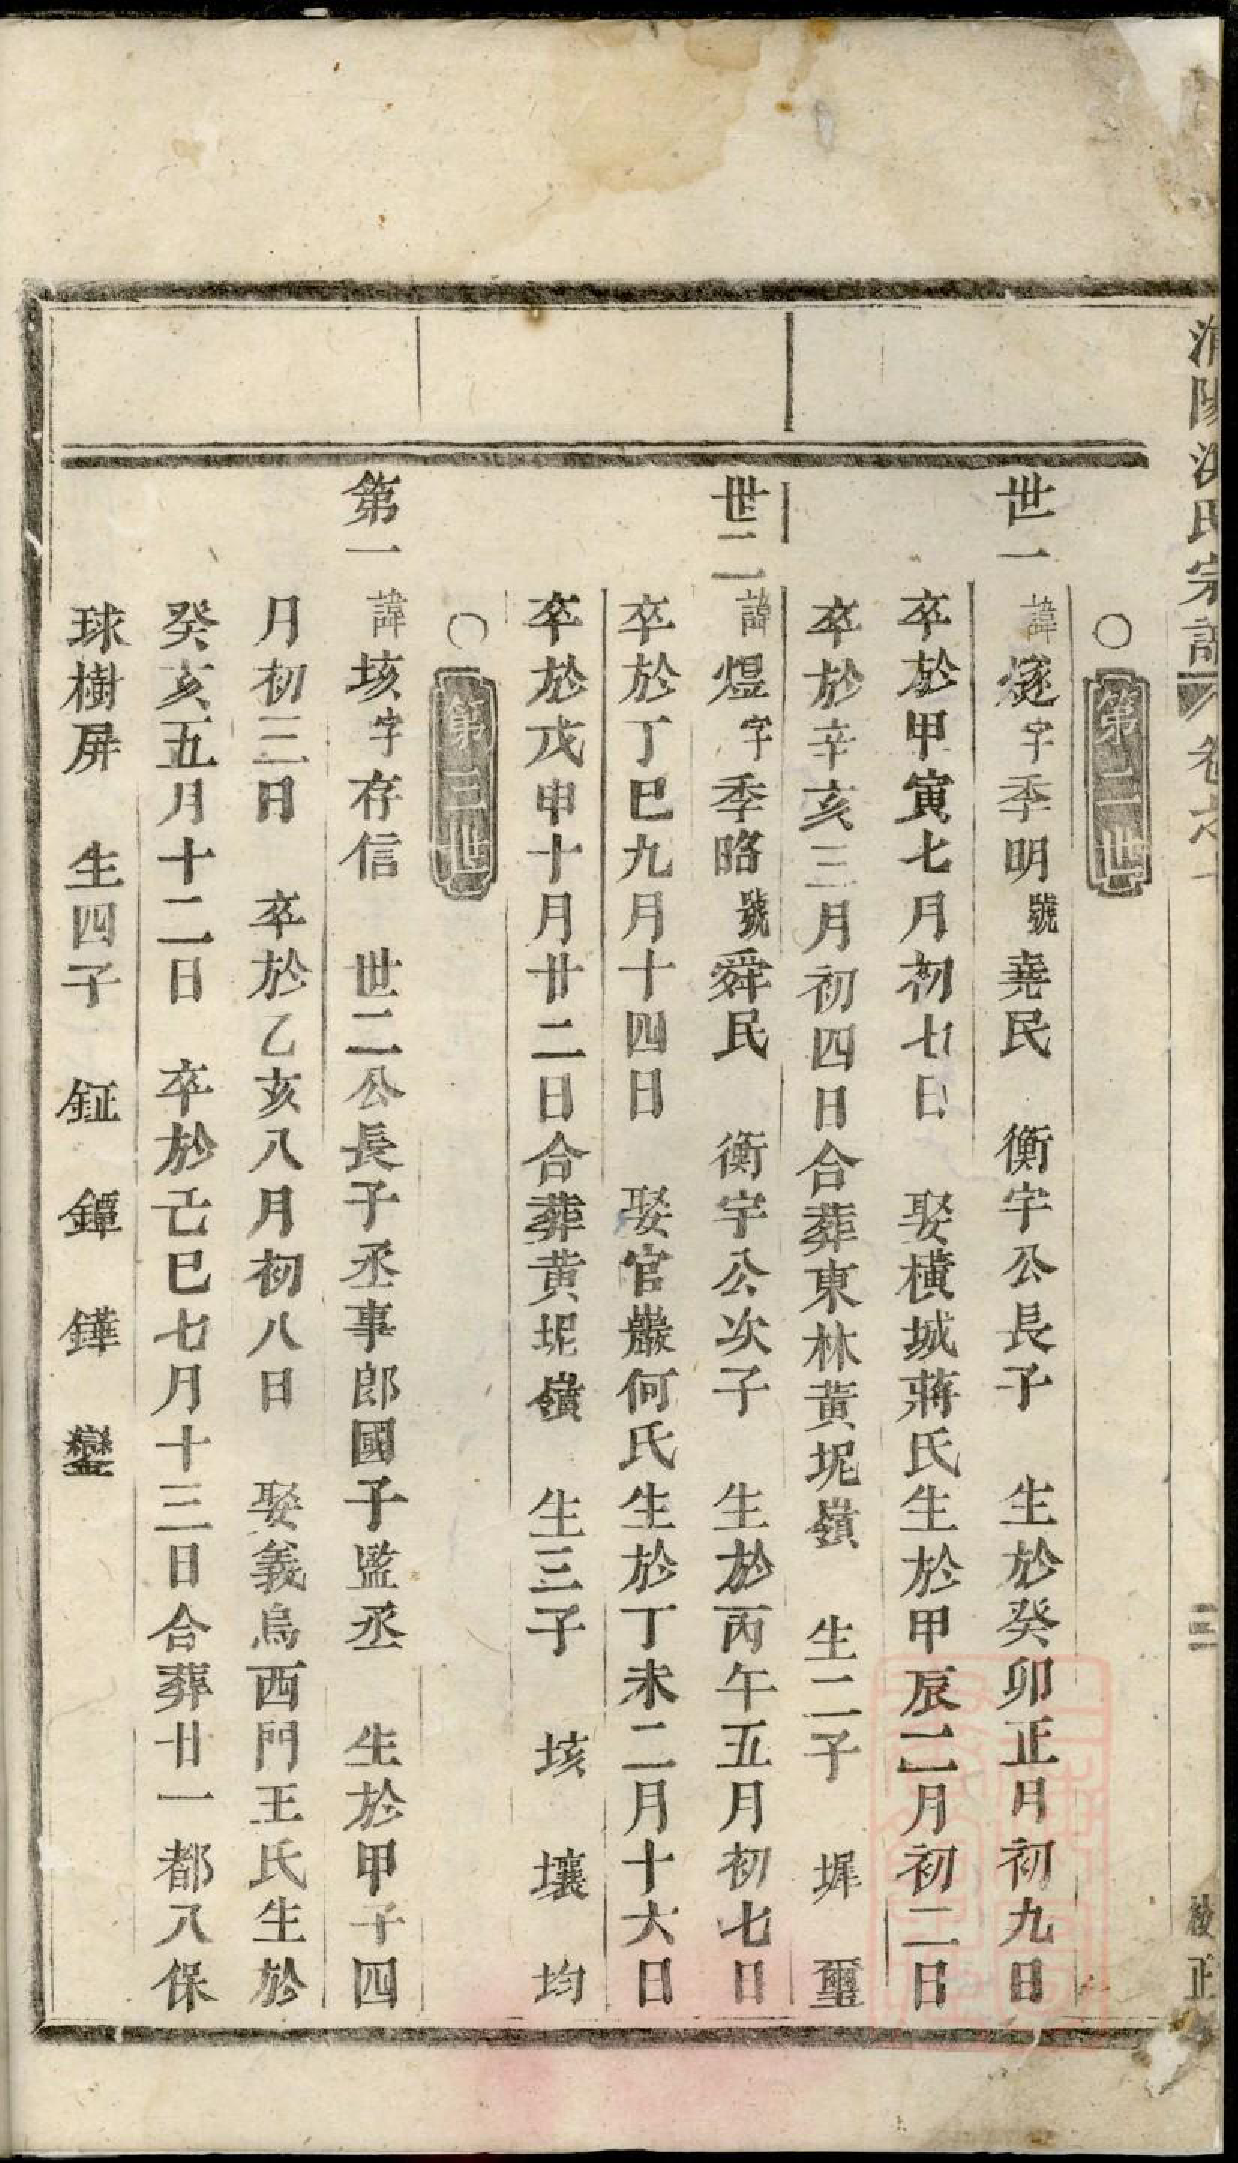 陽洪氏宗譜 卷之十 三 校正
○第二世
世一 諱燧字季明號堯民 衡宇公長子 生於癸卯正月初九日
卒於甲寅七月初七日 娶橫城蔣氏生於甲辰二月初二日
卒於辛亥三月初四日合葬東林黃坭嶺 生二子 墀 璽
世二 諱煜字季略號舜民 衡宇公次子 生於丙午五月初七日
卒於丁巳九月十四日 娶官巖何氏生於丁未二月十六日
卒於戊申十月廿二日合葬黃坭嶺 生三子 垓 壤 均
○第三世
第一 諱垓字存信 世二公長子丞事郎國子監丞 生於甲子四
月初三日 卒於乙亥八月初八日 娶義烏西門王氏生於
癸亥五月十二日 卒於己巳七月十三日合葬廿一都八保
球樹屏 生四子 鉦 鐔 鏵 鑾